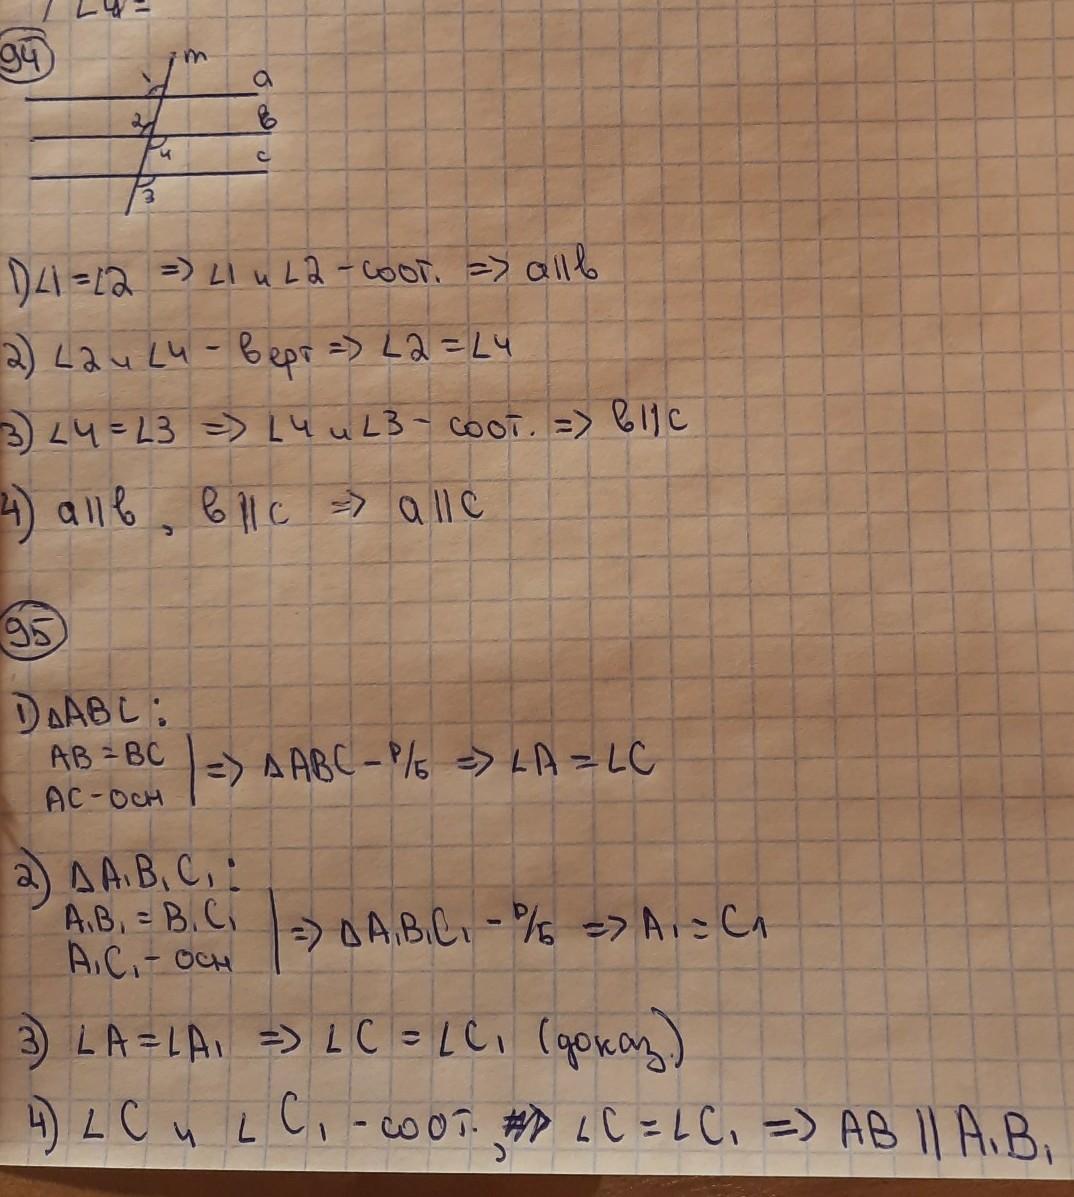 ∠4 =
94
m
1
a
2
в
4
c
3
1) ∠1 = ∠2 => ∠1 и ∠2 - соот. => a||в
2) ∠2 и ∠4 - верт => ∠2 = ∠4
3) ∠4 = ∠3 => ∠4 и ∠3 - соот. => в||c
4) a||в , в||c => a||c
95
1) ΔABC :
AB = BC
AC - осн
=> ΔABC - р/б => ∠A = ∠C
2) ΔA₁B₁C₁ :
A₁B₁ = B₁C₁
A₁C₁ - осн
=> ΔA₁B₁C₁ - р/б => A₁ = C1
3) ∠A = ∠A₁ => ∠C = ∠C₁ (доказ.)
4) ∠C и ∠C₁ - соот. , ∠C = ∠C₁ => AB || A₁B₁